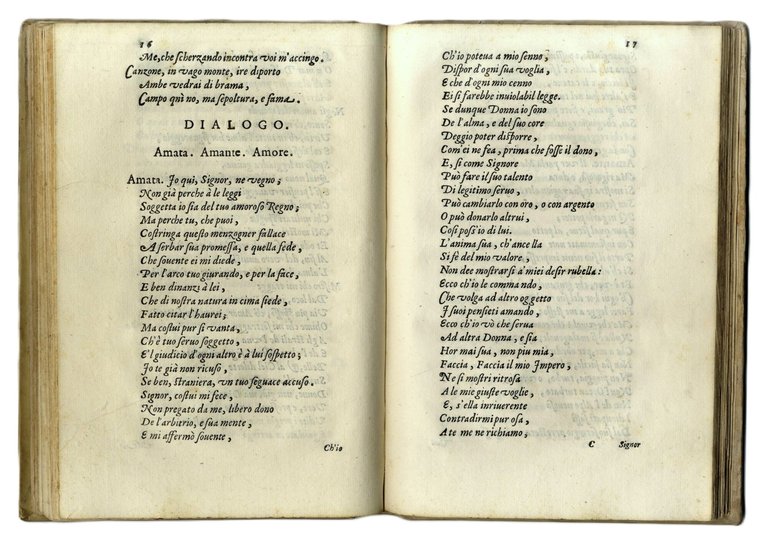 16
Me, che scherzando incontra voi m'accingo.
Canzone, in vago monte, ire diporto
Ambe vedrai di brama,
Campo quì no, ma sepoltura, e fama.
DIALOGO.
Amata. Amante. Amore.
Amata. Jo qui, Signor, ne vegno;
Non già perche à le leggi
Soggetta io sia del tuo amoroso Regno;
Ma perche tu, che puoi,
Costringa questo menzogner fallace
A serbar sua promessa, e quella fede,
Che souente ei mi diede,
Per l'arco tuo giurando, e per la face,
E ben dinanzi à lei,
Che di nostra natura in cima siede,
Fatto citar l'haurei;
Ma costui pur si vanta,
Ch'è tuo seruo soggetto,
E'l giudicio d'ogni altro è à lui sospetto;
Jo te già non ricuso,
Se ben, straniera, vn tuo seguace accuso.
Signor, costui mi fece,
Non pregato da me, libero dono
De l'arbitrio, e sua mente,
E mi affermò souente,
Ch'io
17
Ch'io poteua a mio senno,
Dispor d'ogni sua voglia,
E che d'ogni mio cenno
Ei si farebbe inuiolabil legge.
Se dunque Donna io sono
De l'alma, e del suo core
Deggio poter disporre,
Com'ei ne fea, prima che fosse il dono,
E, si come Signore
Può fare il suo talento
Di legitimo seruo,
Può cambiarlo con oro, o con argento
O può donarlo altrui,
Così poss'io di lui.
L'anima sua, ch'ancella
Si fè del mio valore,
Non dee mostrarsi a' miei desir rubella:
Ecco ch'io le comma ndo,
Che volga ad altro oggetto
I suoi pensieti amando,
Ecco ch'io vò che serua
Ad altra Donna, e sia
Hor mai sua, non piu mia,
Faccia, Faccia il mio Jmpero,
Ne si mostri ritrosa
A le mie giuste voglie,
E, s'ella inriuerente
Contradirmi pur osa,
A te me ne richiamo,
C Signor